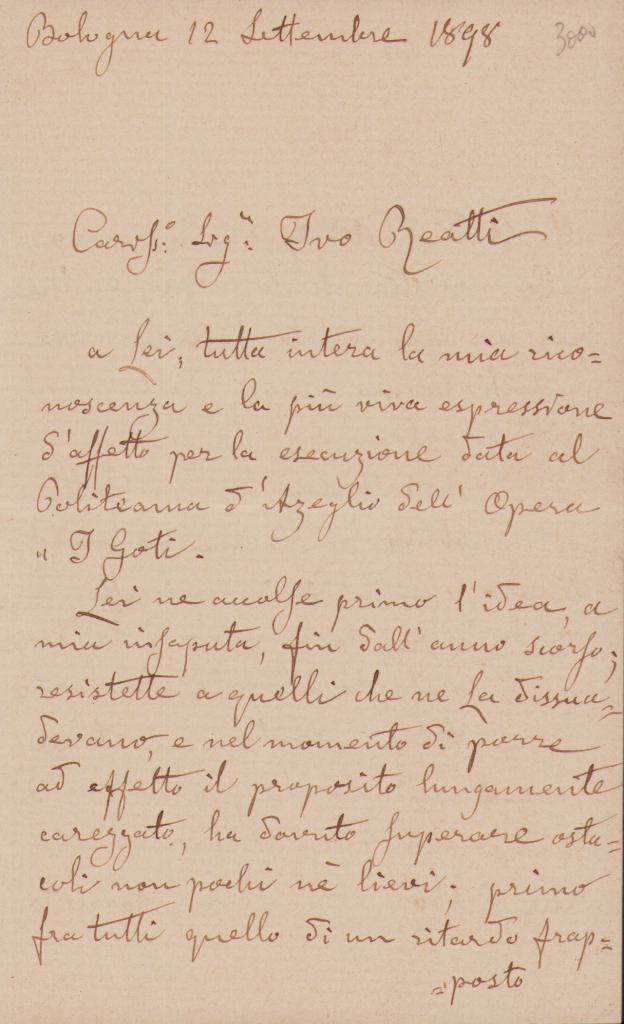 Bologna 12 Settembre 1898 3000
Cariss.º Sig.r Ivo Reatti
a Lei, tutta intera la mia rico=
noscenza e la più viva espressione
d'affetto per la esecuzione data al
Politeama d'Azeglio dell' Opera
" I Goti.
Lei ne accolse primo l'idea, a
mia insaputa, fin dall'anno scorso;
resistette a quelli che ne La dissua=
devano, e nel momento di porre
ad effetto il proposito lungamente
carezzato, ha dovuto superare osta=
coli non pochi nè lievi; primo
fra tutti quello di un ritardo frap=
=posto